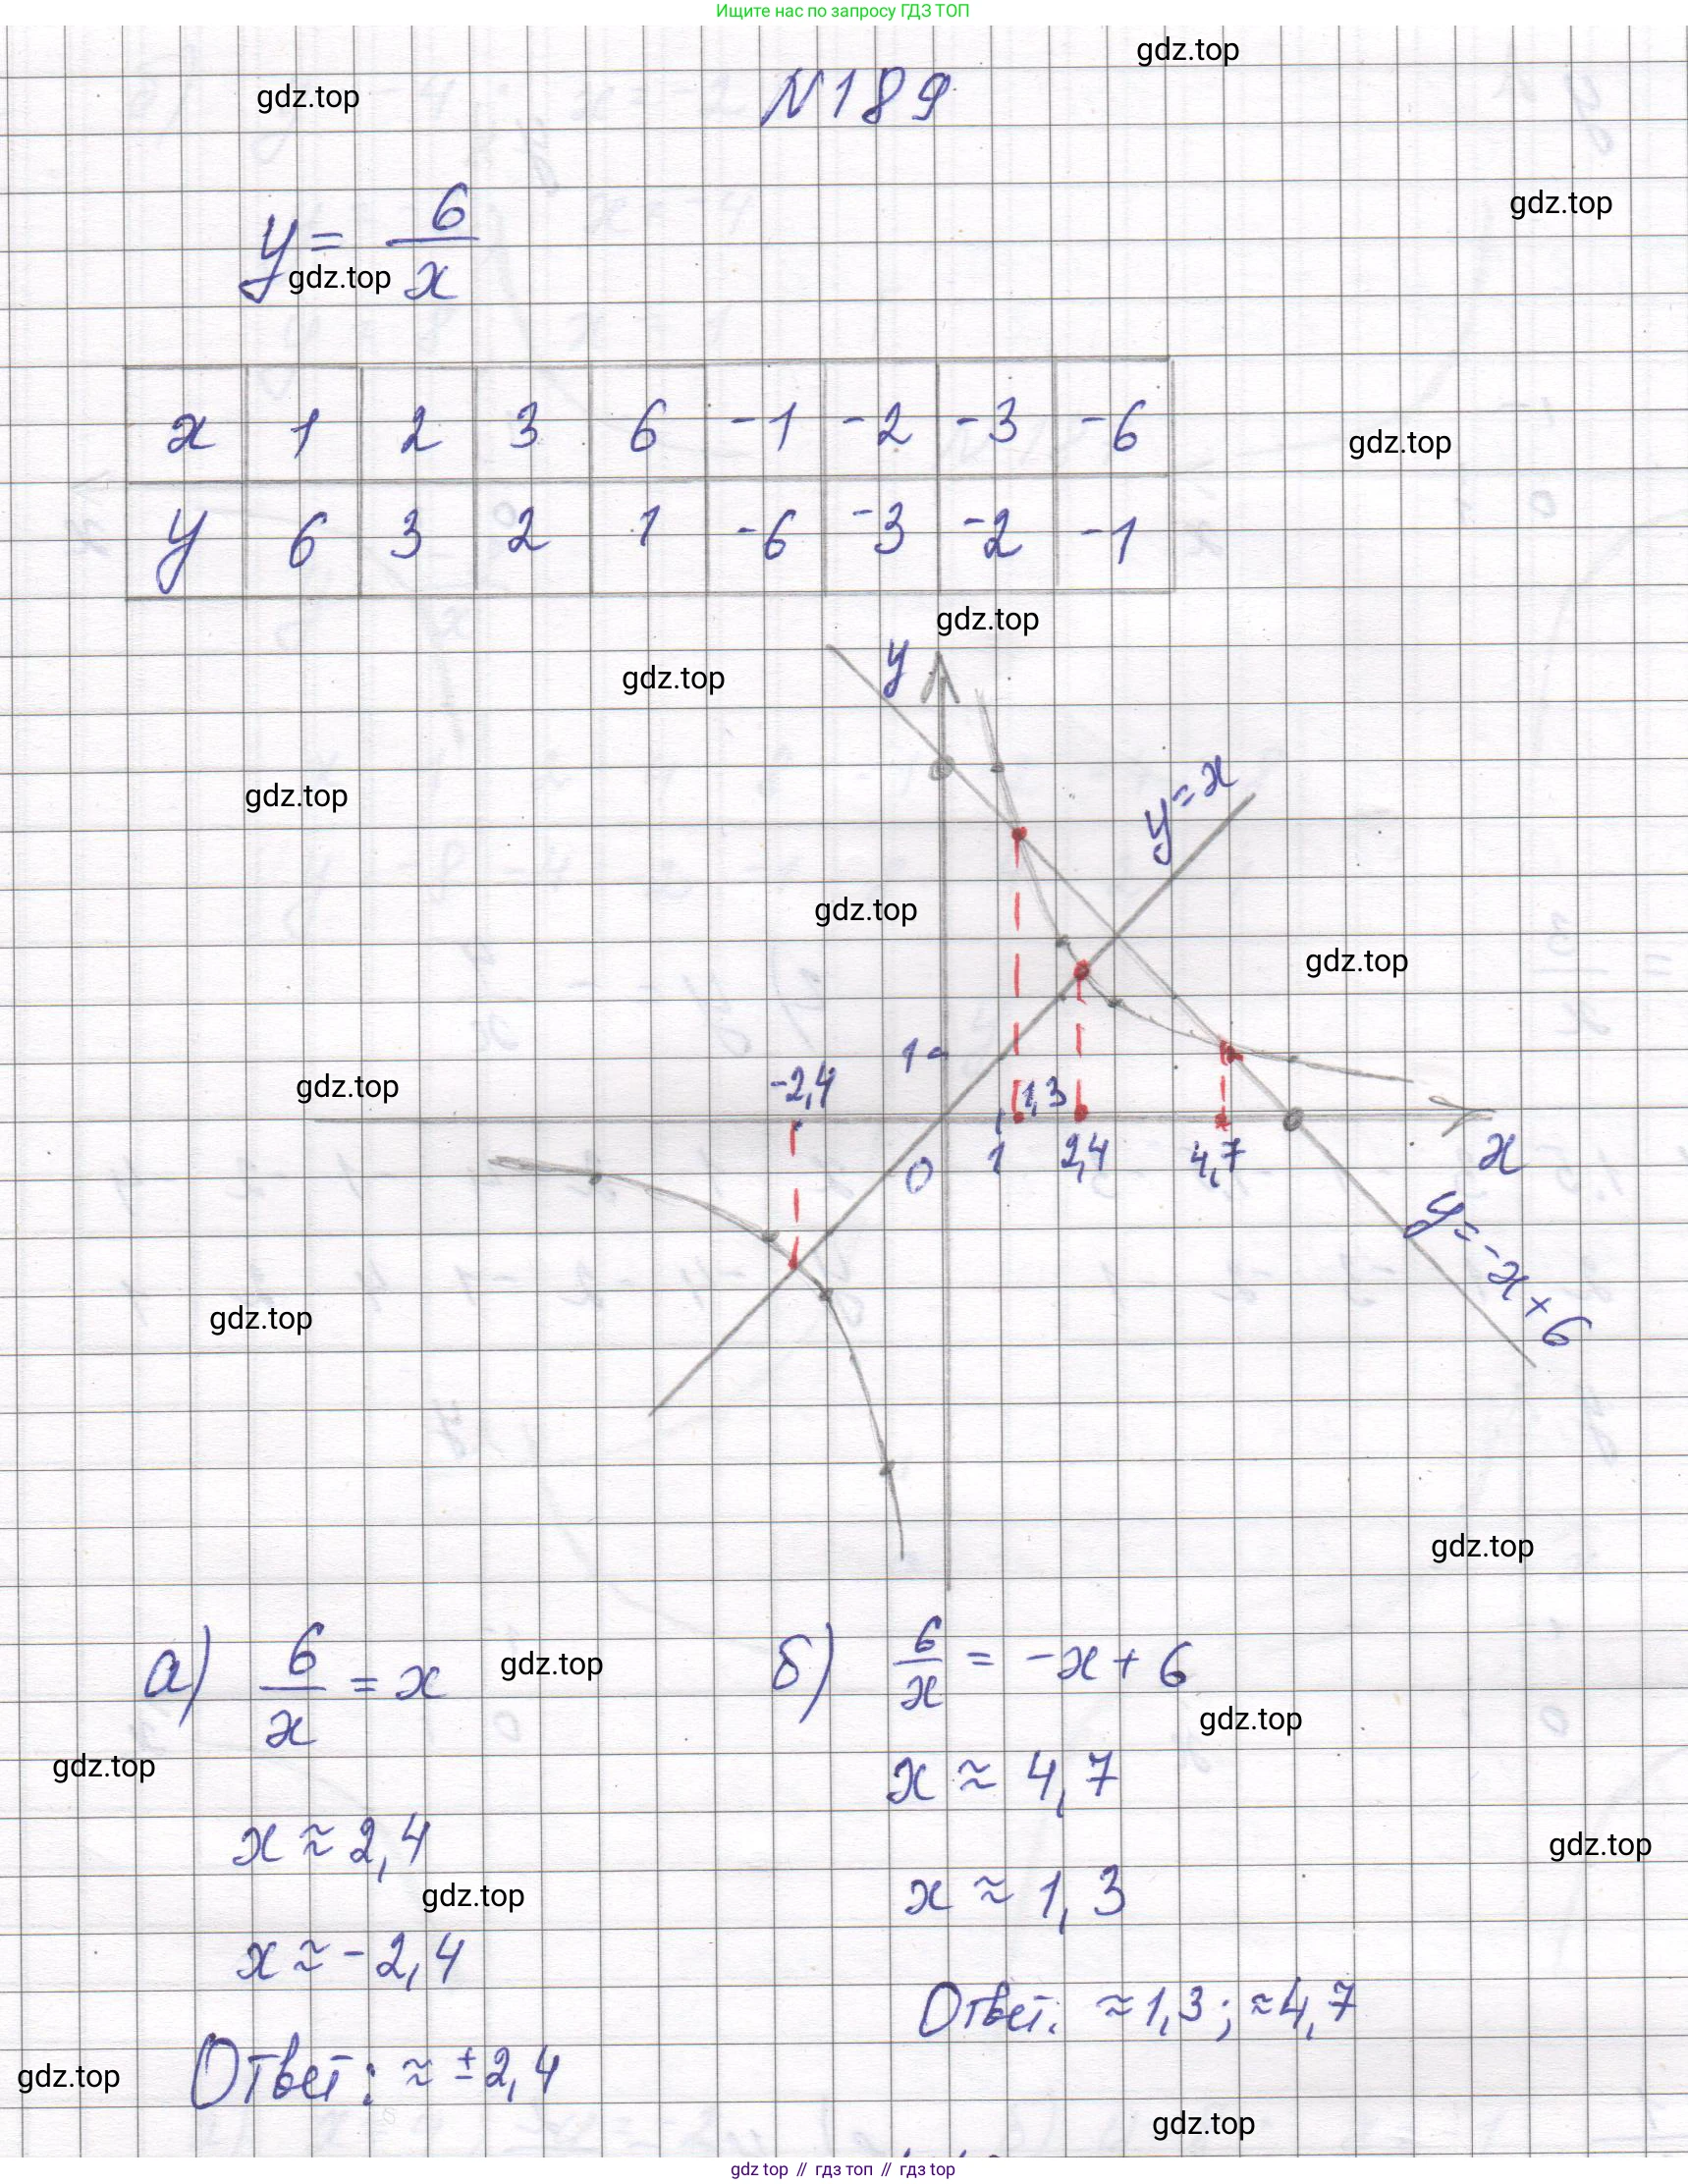 Ищите нас по запросу ГДЗ ТОП
gdz.top
gdz.top
N189
gdz.top
y = 6/x
gdz.top
x 1 2 3 6 -1 -2 -3 -6
gdz.top
y 6 3 2 1 -6 -3 -2 -1
gdz.top
y
gdz.top
y = x
gdz.top
gdz.top
gdz.top
1
gdz.top
-2,4
1,3
0
1
2,4
4,7
x
y = -x + 6
gdz.top
gdz.top
а) 6/x = x
gdz.top
б) 6/x = -x + 6
gdz.top
gdz.top
x ≈ 4,7
x ≈ 2,4
gdz.top
gdz.top
x ≈ 1,3
x ≈ -2,4
Ответ: ≈ 1,3; ≈ 4,7
gdz.top
Ответ: ≈ ± 2,4
gdz.top
gdz top // гдз топ // гдз top